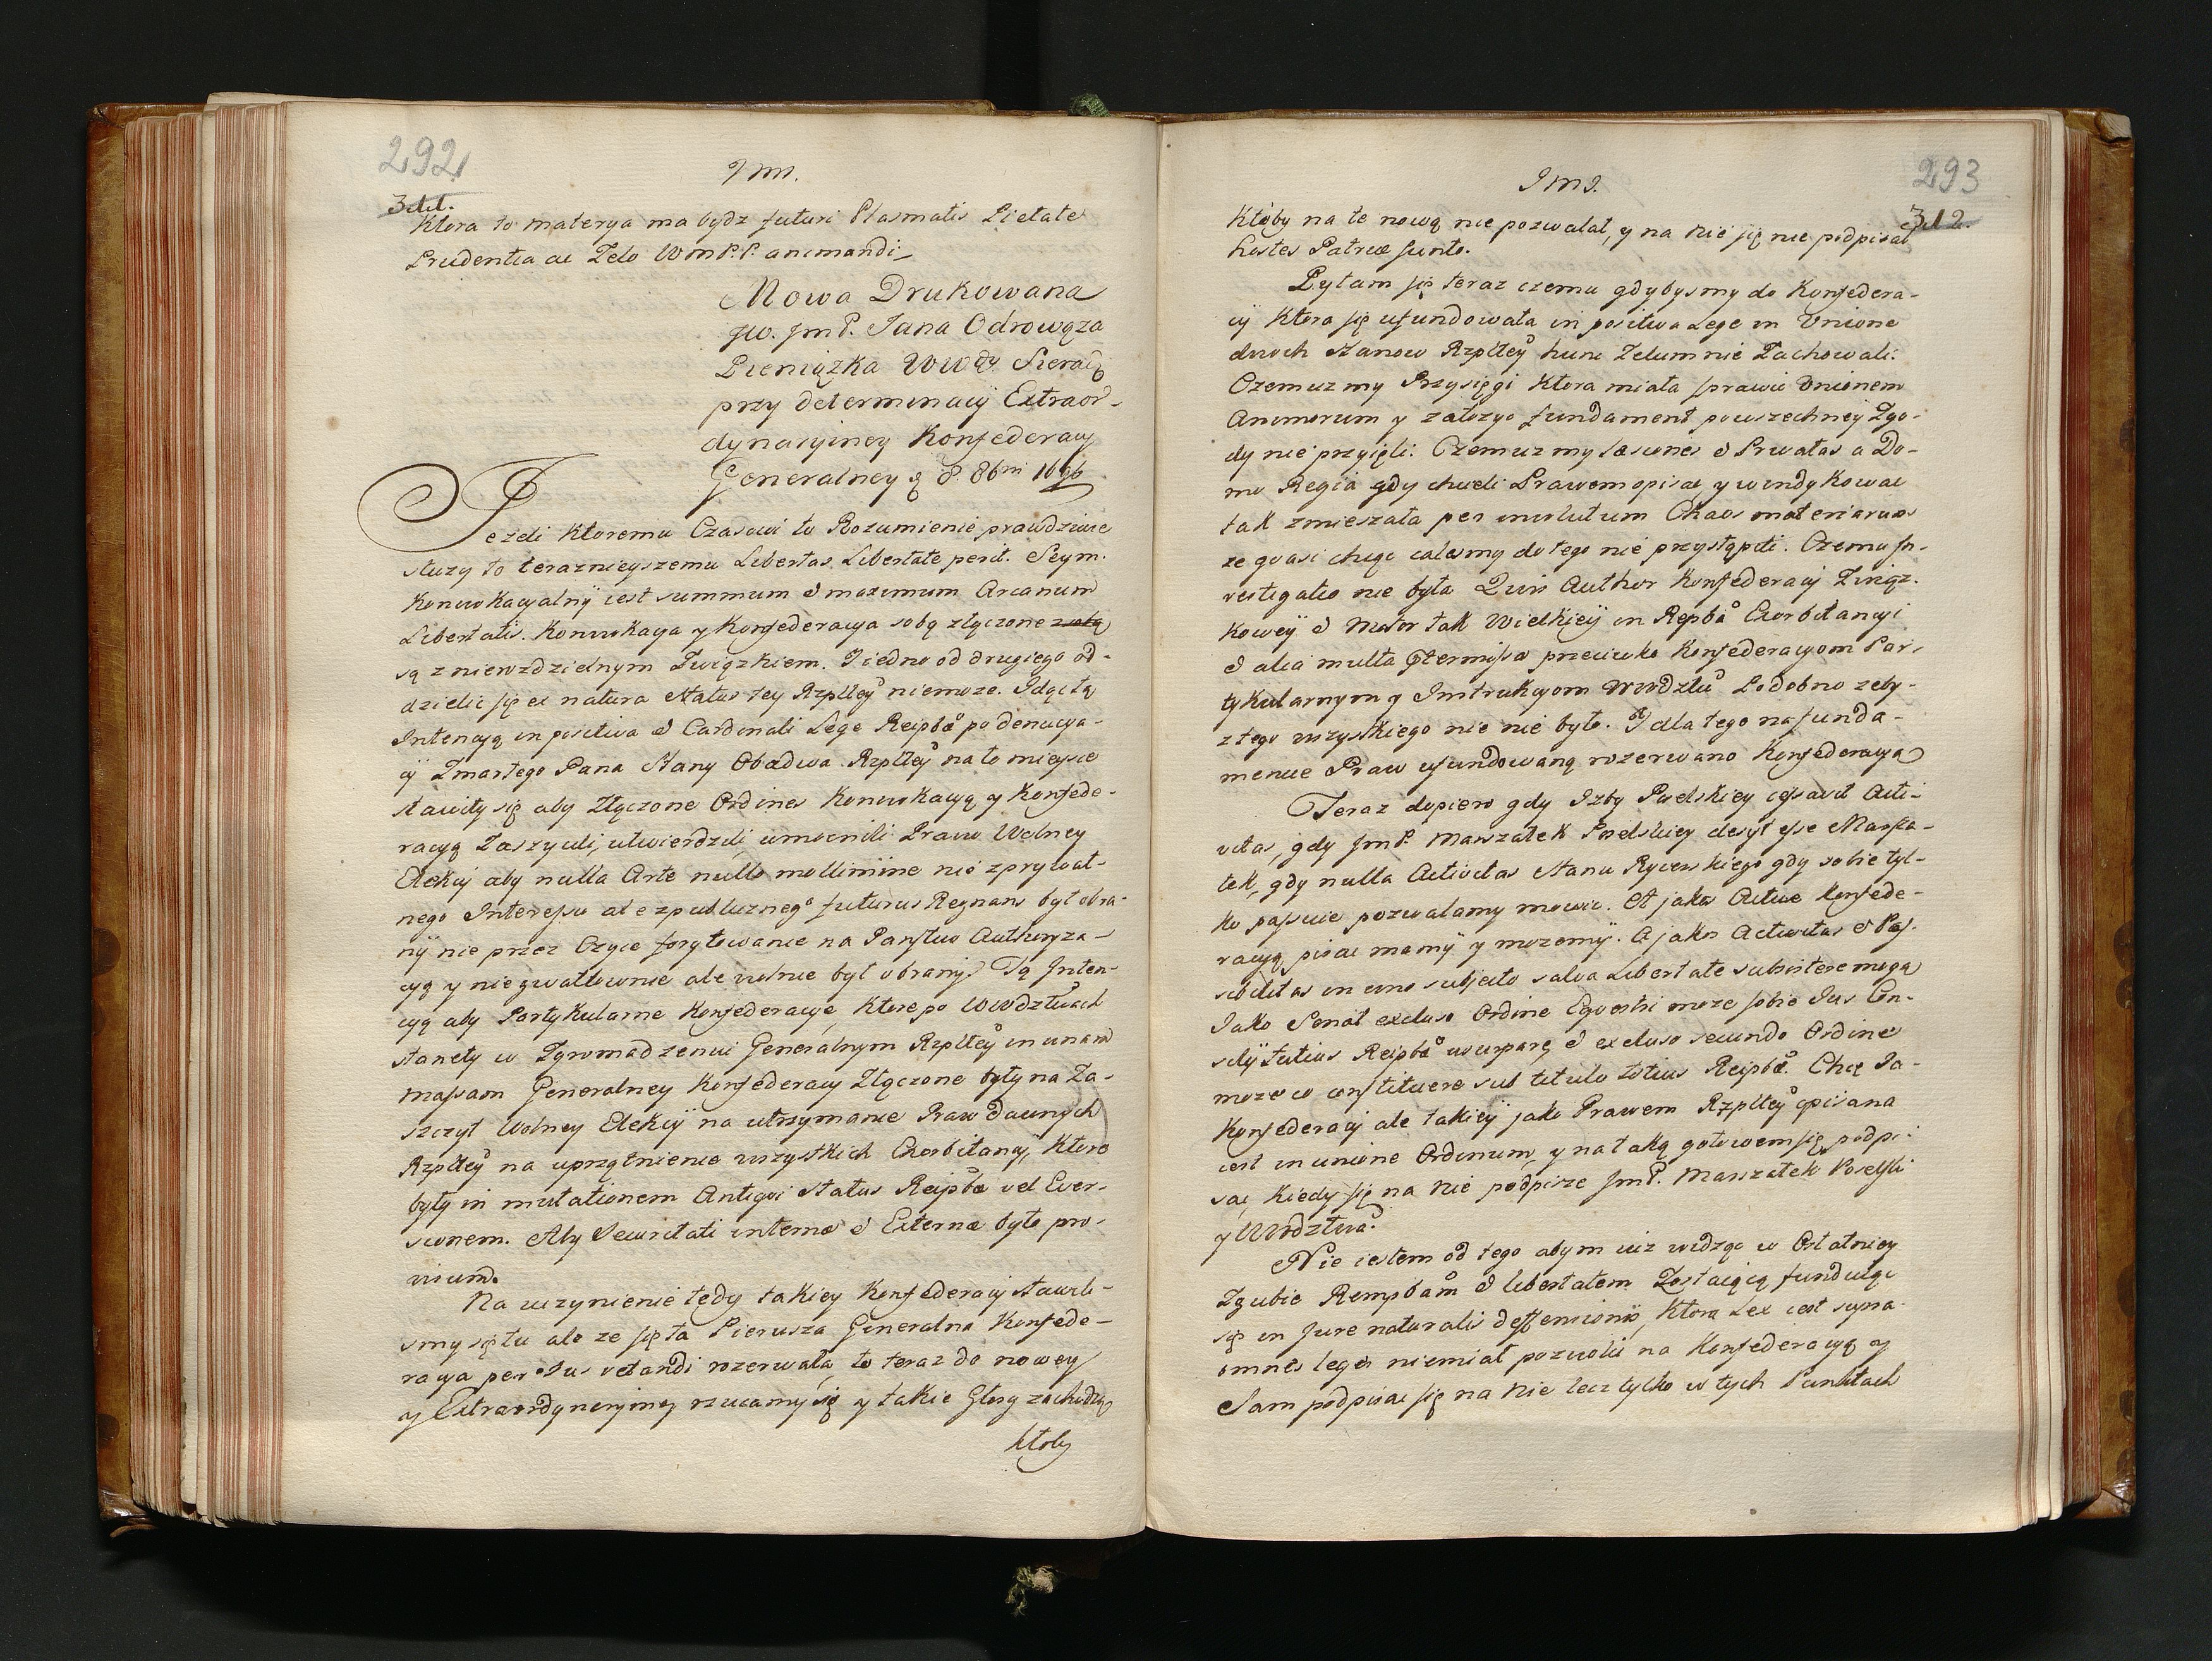 292
311.
Jmi.
Ktora to materya ma bydz futuri Plasmatis Pietate
Prudentia ac Zelo WmP.P. animandi
Mowa Drukowana
Jw. JmP. Jana Odrowąza
Pieniązka Wwdy Sieradz
przy determinacyi Extraor-
dynaryiney Konfederacyi
Generalney d. 8. 8bris 1696
Jezeli ktoremu Czasowi to Rozumienie prawdziwie
słuzy to teraznieyszemu Libertas Libertate perit. Seym
Konwokacyalny iest summum & maximum Arcanum
Libertatis. Konwokacya y Konfederacya sobą złączone
są z nierozdzielnym Związkiem. I iedno od drugiego od-
dzielic się ex natura Status tey Rzpltey niemoze. Idąc tą
Intencyą in positiva & Cardinali Lege Reipbæ po denuncya-
cyi Zmarłego Pana Stany Obadwa Rzpltey na to mieysce
stawiły się aby Złączone Ordines Konwokacyą y Konfede-
racyą Zaszczycili, utwierdzili, umocnili Prawo Wolney
Elekcyi aby nulla Arte nullo mollimine nie z prywat-
nego Interessu ale z publicznego futurus Regnans był obra-
ny nie przez Czyie forytowanie na Panstwo Authoryza-
cyą y nie gwałtownie ale wolnie był obrany. Tą Inten-
cyą aby Partykularne Konfederacye, ktore po Wwdztwach
stanęły w Zgromadzeniu Generalnym Rzpltey in unam
massam Generalney Konfederacyi Złączone były na Za-
szczyt Wolney Elekcyi na utrzymanie Praw dawnych
Rzpltey na uprzątnienie wszystkich Exorbitancyi, ktore
były in mutationem Antiqui Status Reipbæ vel Ever-
sionem. Aby Securitati internæ & Externæ było pro-
visum.
Na uczynienie tedy takiey Konfederacyi stawili-
smy się tu ale ze się ta Pierwsza Generalna Konfede-
racya per Jus vetandi rozerwała, to teraz do nowey
y Extraordynaryiney rzucamy się y takie Głosy zachodzą
ktoby
293
312.
Jmi.
Ktoby na te nową nie pozwalał, y na nię się nie podpisał
hostes Patriæ sunto.
Pytam się teraz czemu gdybysmy do Konfedera-
cyi ktora się ufundowała in positiva Lege in Unione
dwoch Stanow Rzpltey hunc Zelum nie Zachowali.
Czemuz my Przysięgi ktora miała sprawic Unionem
Animorum y załozyc fundament powszechney Zgo-
dy nie przyięli. Czemuz my læsiones & Privatas a Do-
mo Regia gdy chcieli Prawem opisac y windykowac
tak zmieszała per involutum Chaos materiarum
ze quasi chcąc calesmy do tego nie przystąpili. Czemu In-
vestigatio nie była Quis Author Konfederacyi Związ-
kowey & Motor tak Wielkiey in Repba Exorbitancyi
& alia multa prtermissa przeciwko Konfederacyom Par-
tykularnym y Instrukcyom Wwdztw Podobno zeby
z tego wszystkiego nic nie było. I dla tego na funda-
mencie Praw ufundowaną rozerwano Konfederacyą
Teraz dopiero gdy Izby Poselskiey cessavit Acti-
vitas, gdy JmP. Marszałek Poselskiey desiit esse Marsza-
łek, gdy nulla Activitas Stanu Rycerskiego gdy sobie tyl-
ko passive pozwalamy mowic. A jako Active Konfede-
racyą pisac mamy y mozemy. A jako Activitas & Pas-
sibilitas in uno subjecto salva Libertate subsistere mogą
Jako Senat excluso Ordine Equestri moze sobie Jus Con-
silij totius Reipbæ usurpare & excluso secundo Ordine
moze co constituere sub titulo totius Reipbæ. Chcę Ja
Konfederacyi ale takiey jako Prawem Rzpltey opisana
iest in unione Ordinum, y na taką gotowem się podpi-
sac, kiedy się na nię podpisze JmP. Marszałek Poselski
y Wwdztwa.
Nie iestem od tego abym iuz widząc w Ostatniey
Zgubie Rempbam & libertatem Zostaiącą funduiąc
się in Jure naturalis deffensionis, ktora Lex iest supra
omnes leges niemiał pozwolic na Konfederacyą y
Sam podpisac się na nię lecz tylko w tych Punktach